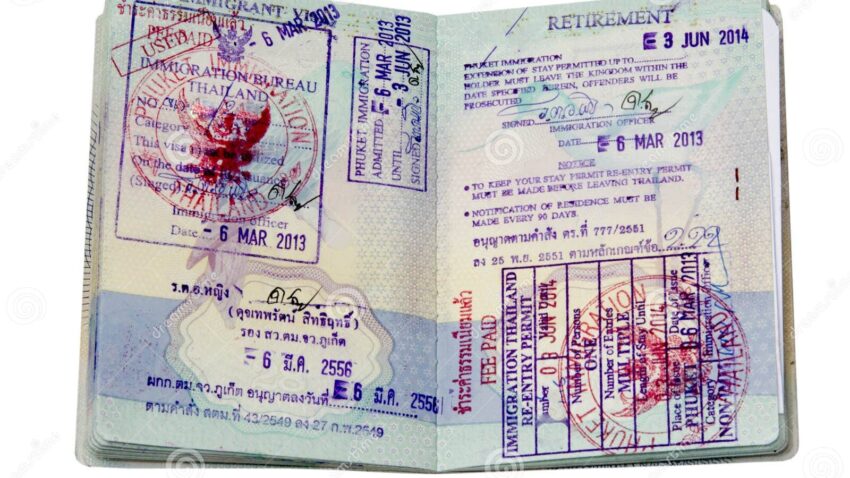 IMMIGRANT
ชำระค่าธรรมเนียมแล้ว
FEE PAID
USED
6 MAR 2013
IMMIGRATION BUREAU
THAILAND
PHUKET IMMIGRATION
THAILAND
NO.
Category
This visa
On the date
Immigration officer
Date 6 MAR 2013
PHUKET IMMIGRATION
ADMITTED 6 MAR 2013
UNTIL 3 JUN 2013
SIGNED
ร.ต.อ.หญิง
(ดุขเทพรัตน์ สิทธิฤทธิ์)
รอง สว.ตม.จว.ภูเก็ต
6 มี.ค. 2556
ผกก.ตม.จว.ภูเก็ต อนุญาตลงวันที่ 6 มี.ค. 2556
ตามคำสั่ง สตม.ที่ 43/2549 ลง 27 ก.พ.2549
RETIREMENT
3 JUN 2014
PHUKET IMMIGRATION
EXTENSION OF STAY PERMITTED UP TO
HOLDER MUST LEAVE THE KINGDOM WITHIN THE
DATE SPECIFIED HEREIN, OFFENDERS WILL BE
PROSECUTED
SIGNED
IMMIGRATION OFFICER
DATE 6 MAR 2013
NOTICE
• TO KEEP YOUR STAY PERMIT RE-ENTRY PERMIT
MUST BE MADE BEFORE LEAVING THAILAND.
• NOTIFICATION OF RESIDENCE MUST BE
MADE EVERY 90 DAYS.
อนุญาตตามคำสั่ง ตร.ที่ 777/2551
ลง 25 พ.ย. 2551 ตามหลักเกณฑ์ข้อ
ชำระค่าธรรมเนียมแล้ว
FEE PAID
IMMIGRATION THAILAND
RE-ENTRY PERMIT
Number of Persons
ONE
Number of Entries
MULTIPLE
Length of Stay Until
Place of Issue
PHUKET
Date of Issue
6 MAR 2013
Category
NON-IMM
Immigration officer
PHUKET IMMIGRATION
THAILAND